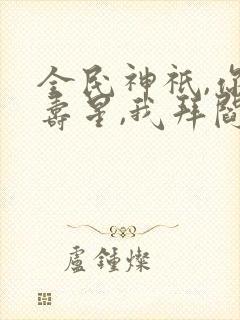 全民神祇,你
壽星,我拜閻
盧鍾燦